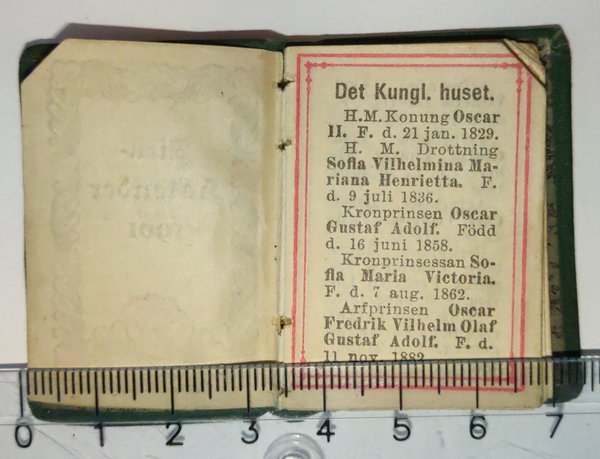 Det Kungl. huset.
H. M. Konung Oscar
II. F. d. 21 jan. 1829.
H. M. Drottning
Sofia Vilhelmina Ma-
riana Henrietta. F.
d. 9 juli 1836.
Kronprinsen Oscar
Gustaf Adolf. Född
d. 16 juni 1858.
Kronprinsessan So-
fia Maria Victoria.
F. d. 7 aug. 1862.
Arfprinsen Oscar
Fredrik Vilhelm Olaf
Gustaf Adolf. F. d.
11 nov. 1882
0 1 2 3 4 5 6 7